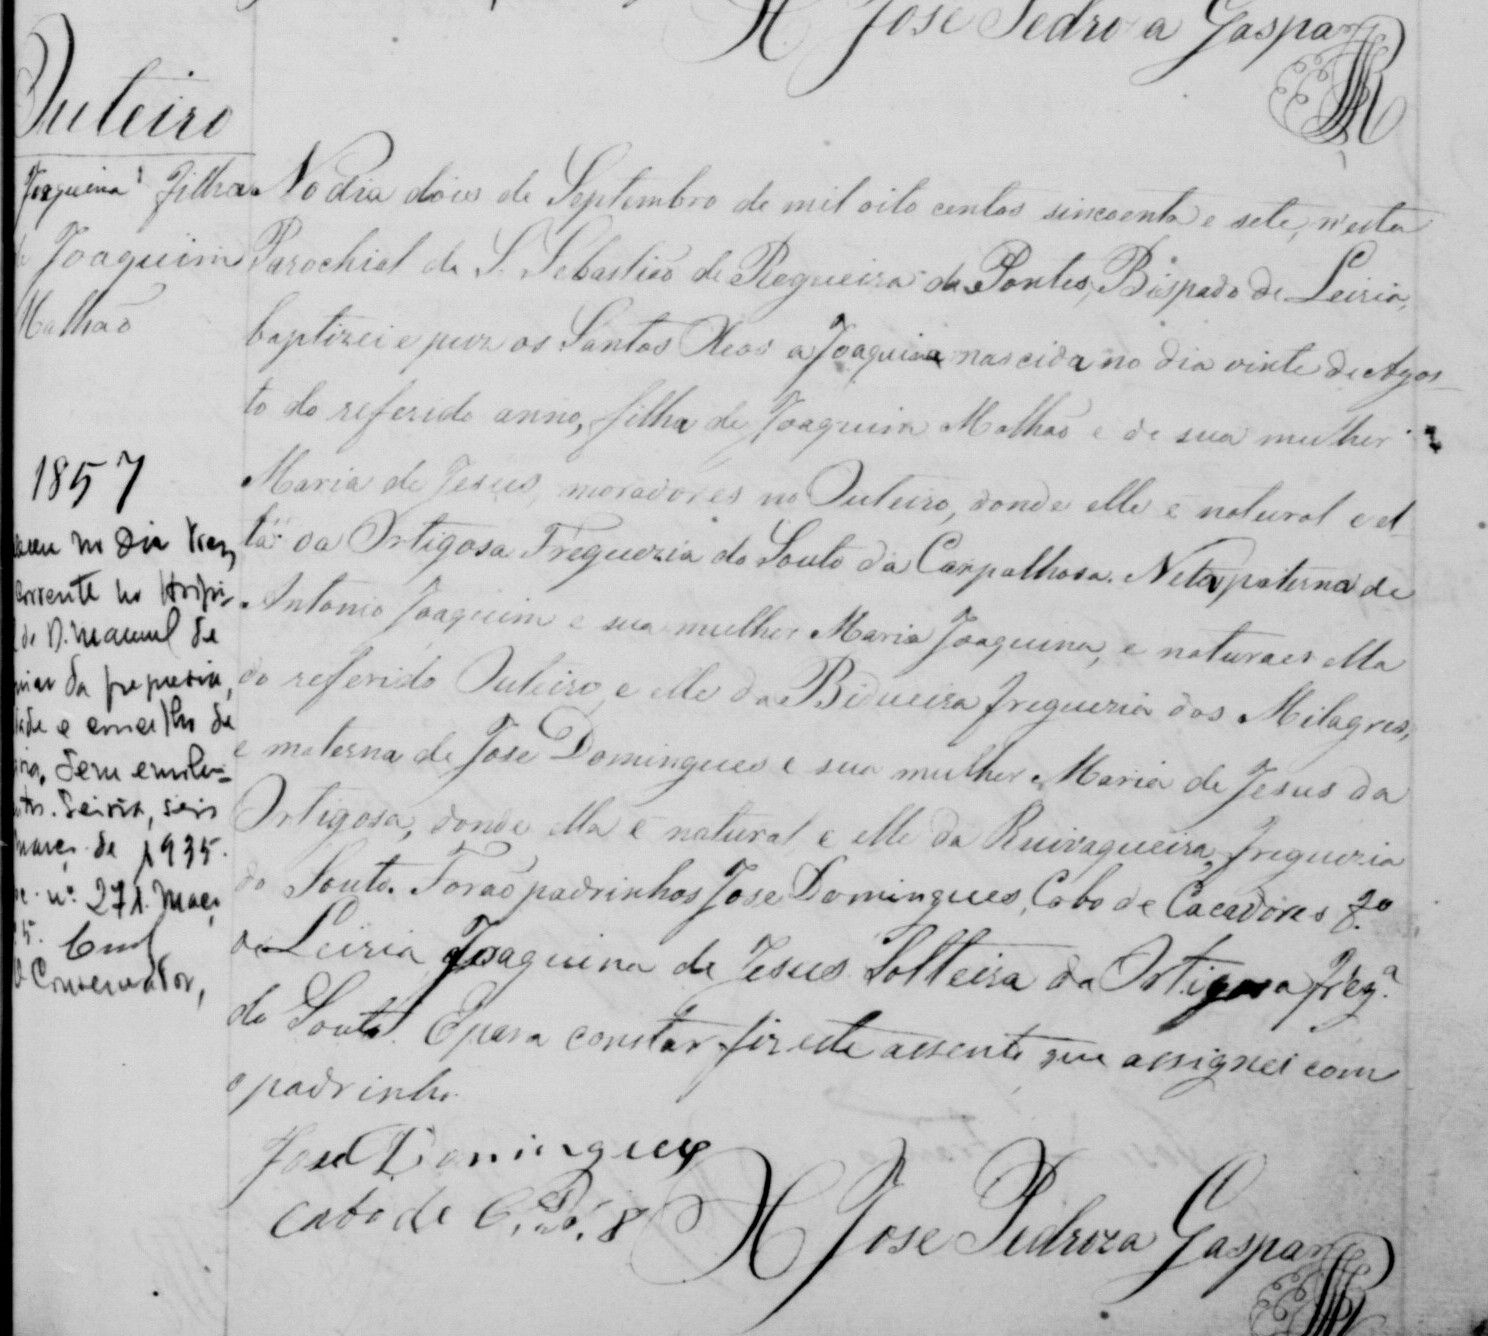 José Pedroza Gaspar
Outeiro
Joaquina filha
de Joaquim
Malhaõ
No dia dois de Septembro de mil oito centos sincoenta e sete, n'esta
Parochial de S. Sebastiaõ de Regueira de Pontes, Bispado de Leiria,
baptizei e puz os Santos Oleos a Joaquina nascida no dia vinte de Agos-
to do referido anno, filha de Joaquim Malhaõ e de sua mulher
Maria de Jesus, moradores no Outeiro, donde elle e natural e el-
la da Ortigosa Freguezia do Souto da Carpalhosa. Neta paterna de
Antonio Joaquim e sua mulher Maria Joaquina, e naturaes ella
do referido Outeiro, e elle da Bidueira freguezia dos Milagres,
e materna de Jose Domingues e sua mulher Maria de Jesus da
Ortigosa, donde ella e natural e elle da Ruivaqueira, freguezia
do Souto. Foraõ padrinhos Jose Domingues, Cabo de Cacadores 8º
de Leiria Joaquina de Jesus Solteira da Ortigosa freg.ª
do Souto. E para constar fiz este assento que assignei com
o padrinho.
José Domingues
cabo de C. 8
José Pedroza Gaspar
1857
no dia trez
corrente no Hospi-
de D. Manuel de
da freguesia,
dade e concelho de
Sem emolu-
Leiria, seis
março de 1935.
nº 271. Maço
5.
O Conservador,